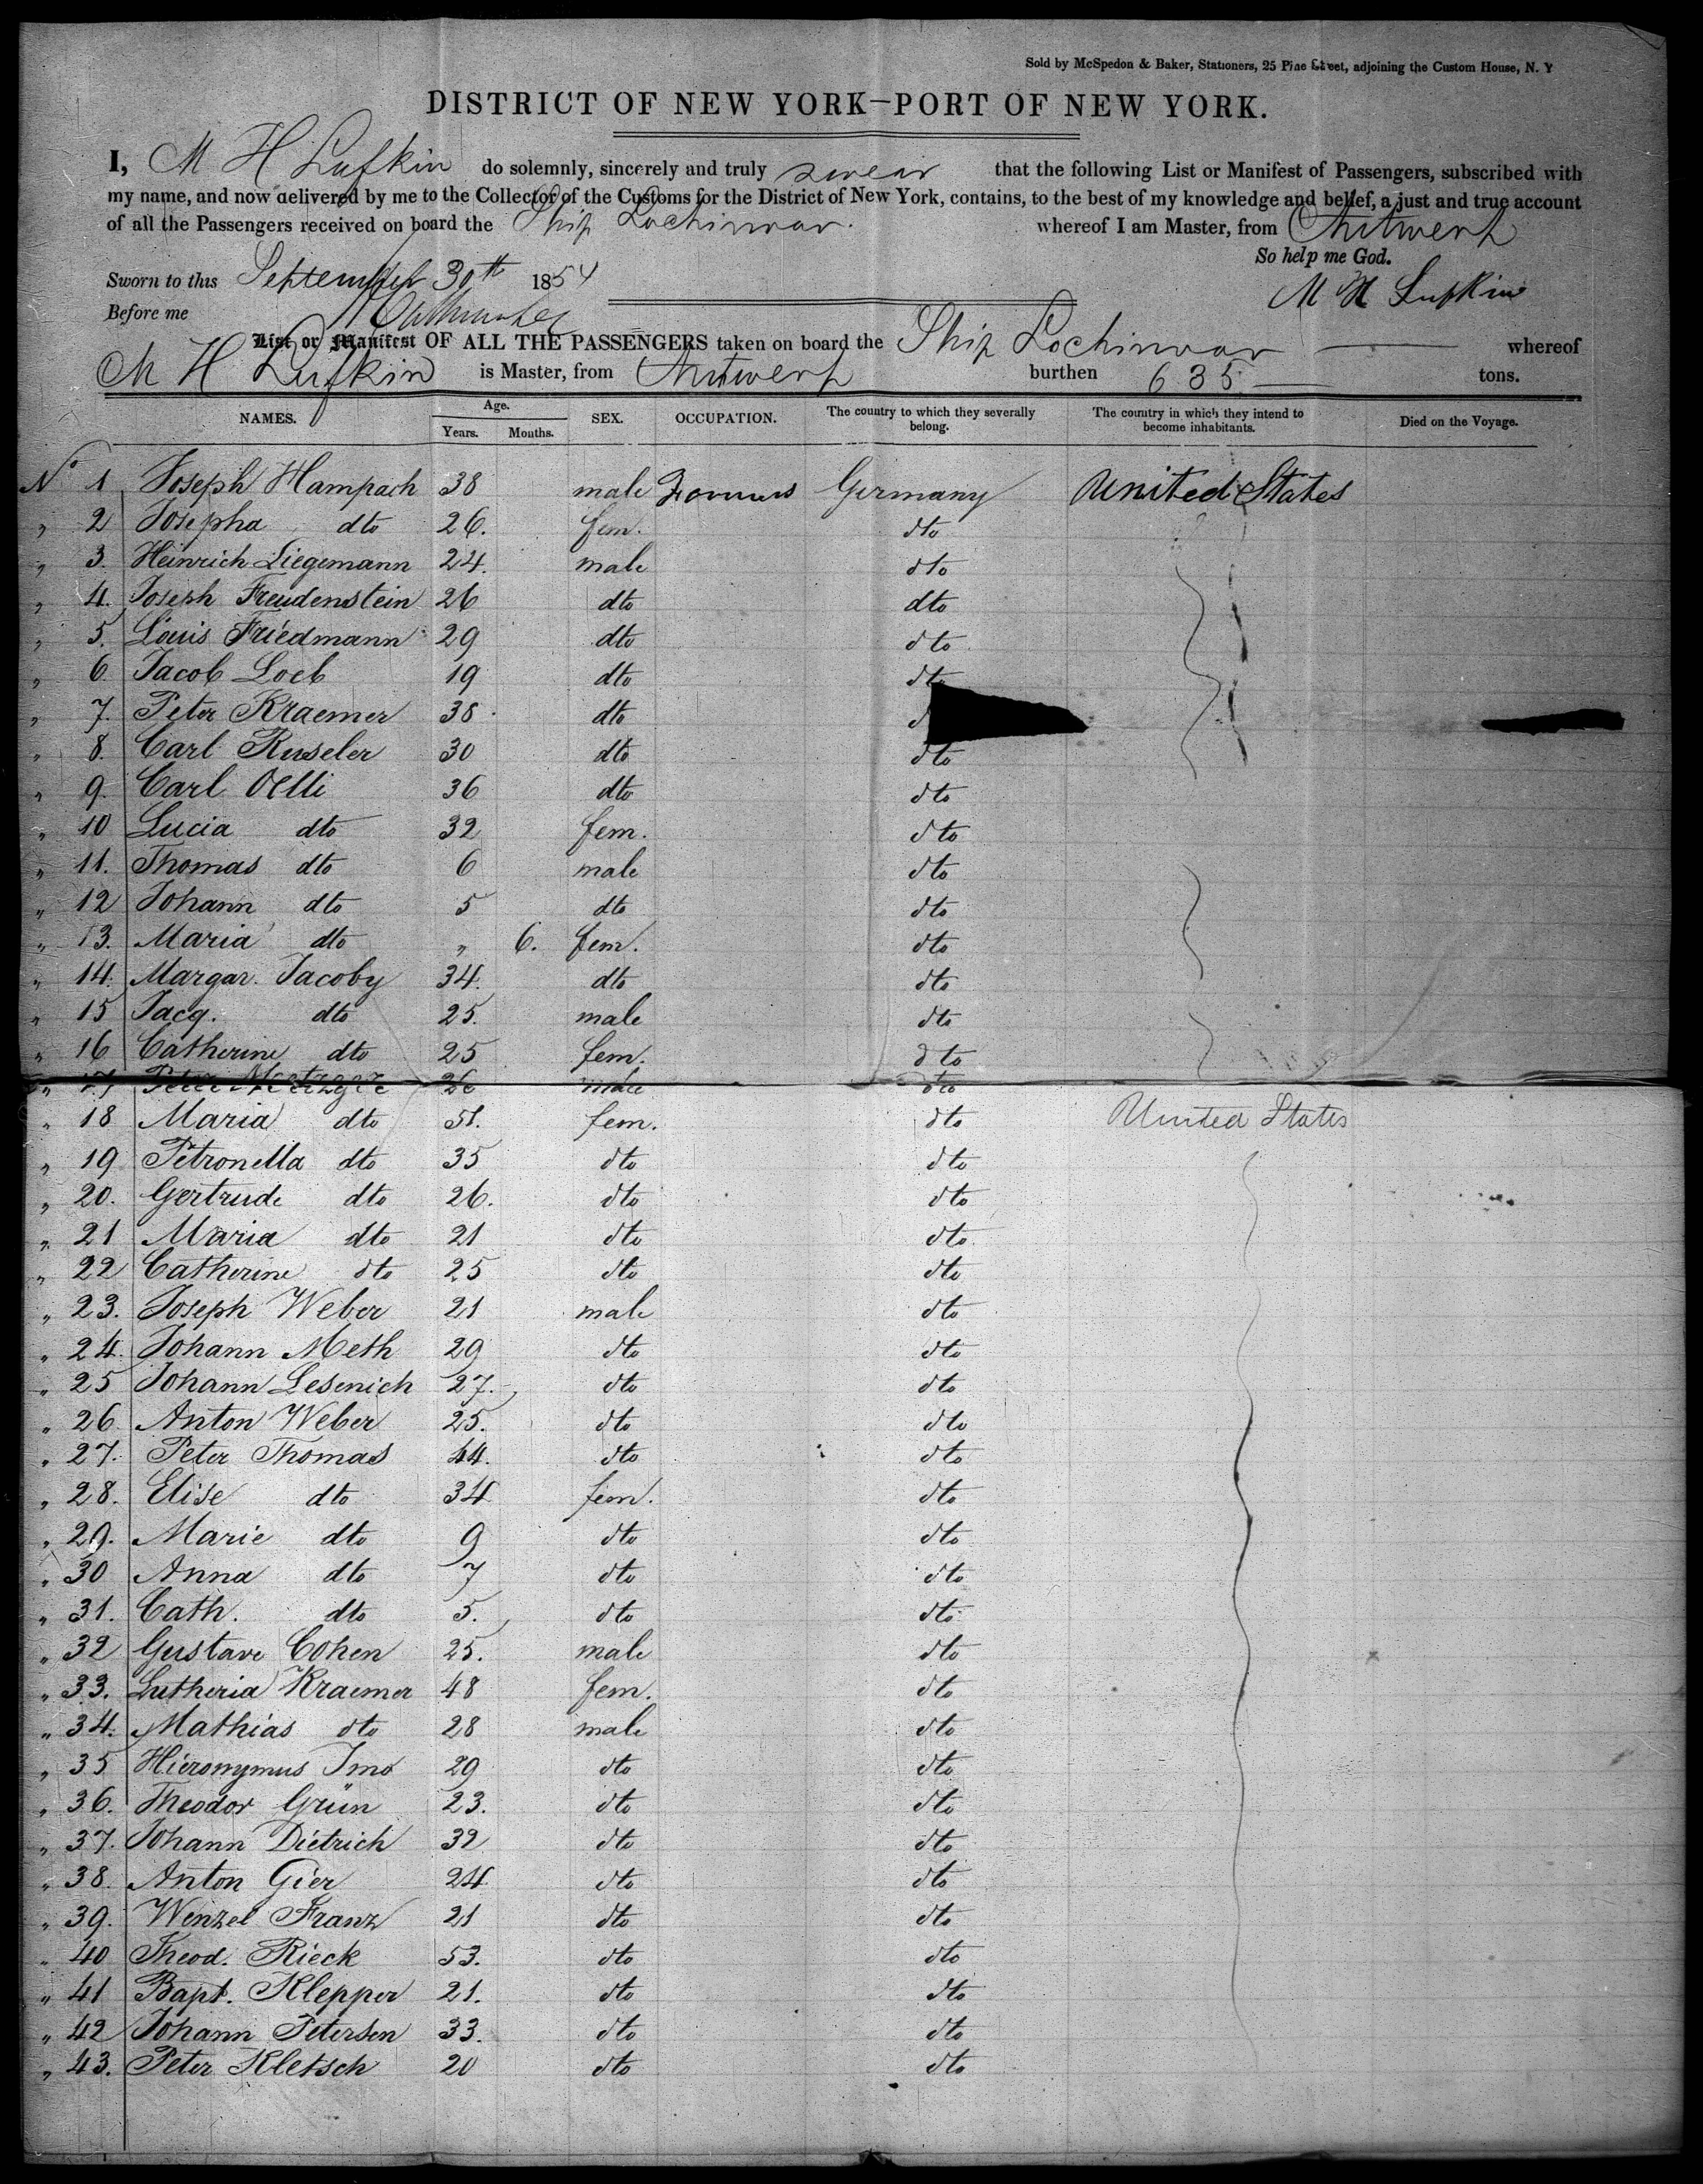 Sold by McSpedon & Baker, Stationers, 25 Pine Street, adjoining the Custom House, N. Y
DISTRICT OF NEW YORK—PORT OF NEW YORK.
I, M H Lufkin do solemnly, sincerely and truly swear that the following List or Manifest of Passengers, subscribed with
my name, and now delivered by me to the Collector of the Customs for the District of New York, contains, to the best of my knowledge and belief, a just and true account
of all the Passengers received on board the Ship Lochinvar. whereof I am Master, from Antwerp
So help me God.
Sworn to this September 30th 1854
M H Lufkin
Before me
List or Manifest OF ALL THE PASSENGERS taken on board the Ship Lochinvar whereof
M H Lufkin is Master, from Antwerp burthen 635 tons.
NAMES. Age. Years. Months. SEX. OCCUPATION. The country to which they severally belong. The country in which they intend to become inhabitants. Died on the Voyage.
No 1 Joseph Hampach 38 male Farmers Germany United States
" 2 Josepha dto 26. fem. dto
" 3. Heinrich Liegemann 24. male dto
" 4. Joseph Freudenstein 26 dto dto
" 5. Louis Friedmann 29 dto dto
" 6 Jacob Loeb 19 dto dto
" 7. Peter Kraemer 38 dto
" 8. Carl Ruseler 30 dto dto
" 9. Carl Oelli 36 dto dto
" 10 Lucia dto 32 fem. dto
" 11. Thomas dto 6 male dto
" 12 Johann dto 5 dto dto
" 13. Maria dto " 6. fem. dto
" 14. Margar. Jacoby 34. dto dto
" 15 Jacq. dto 25. male dto
" 16 Catherine dto 25 fem. dto
" 17 Peter Metzger 26 male dto
" 18 Maria dto 51. fem. dto United States
" 19 Petronella dto 35 dto dto
" 20. Gertrude dto 26. dto dto
" 21 Maria dto 21 dto dto
" 22 Catherine dto 25 dto dto
" 23. Joseph Weber 21 male dto
" 24. Johann Meth 29 dto dto
" 25 Johann Lesenich 27. dto dto
" 26 Anton Weber 25. dto dto
" 27. Peter Thomas 44. dto dto
" 28. Elise dto 34 fem. dto
" 29. Marie dto 9 dto dto
" 30 Anna dto 7 dto dto
" 31. Cath. dto 5. dto dto
" 32 Gustave Cohen 25. male dto
" 33. Lutheria Kraemer 48 fem. dto
" 34. Mathias dto 28 male dto
" 35 Hieronymus Imo 29 dto dto
" 36. Theodor Grün 23. dto dto
" 37. Johann Dietrich 32 dto dto
" 38. Anton Gier 24 dto dto
" 39. Wenzel Franz 21 dto dto
" 40 Theod. Rieck 53. dto dto
" 41 Bapt. Klepper 21. dto dto
" 42 Johann Petersen 33. dto dto
" 43. Peter Kletsch 20 dto dto